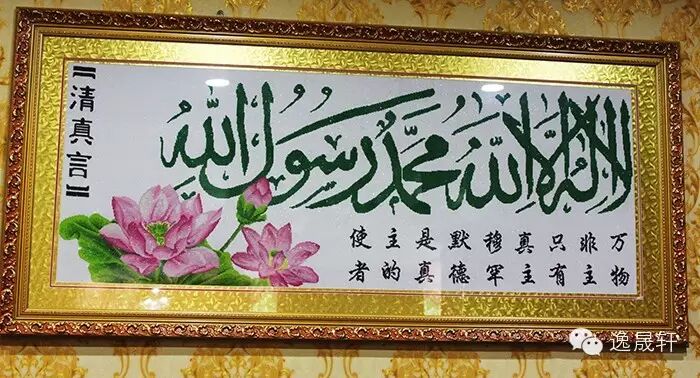 【清真言】
لا اله الا الله محمد رسول الله
万物
非主
只有
真主
穆罕
默德
是真
主的
使者
逸晟轩